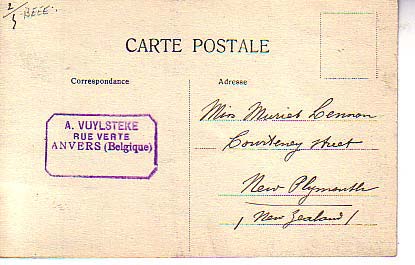 2/3 BEEE.
CARTE POSTALE
Correspondance
Adresse
A. VUYLSTEKE
RUE VERTE
ANVERS (Belgique)
Miss Muriel Lennon
Courtenay street
New Plymouth
(New Zealand)